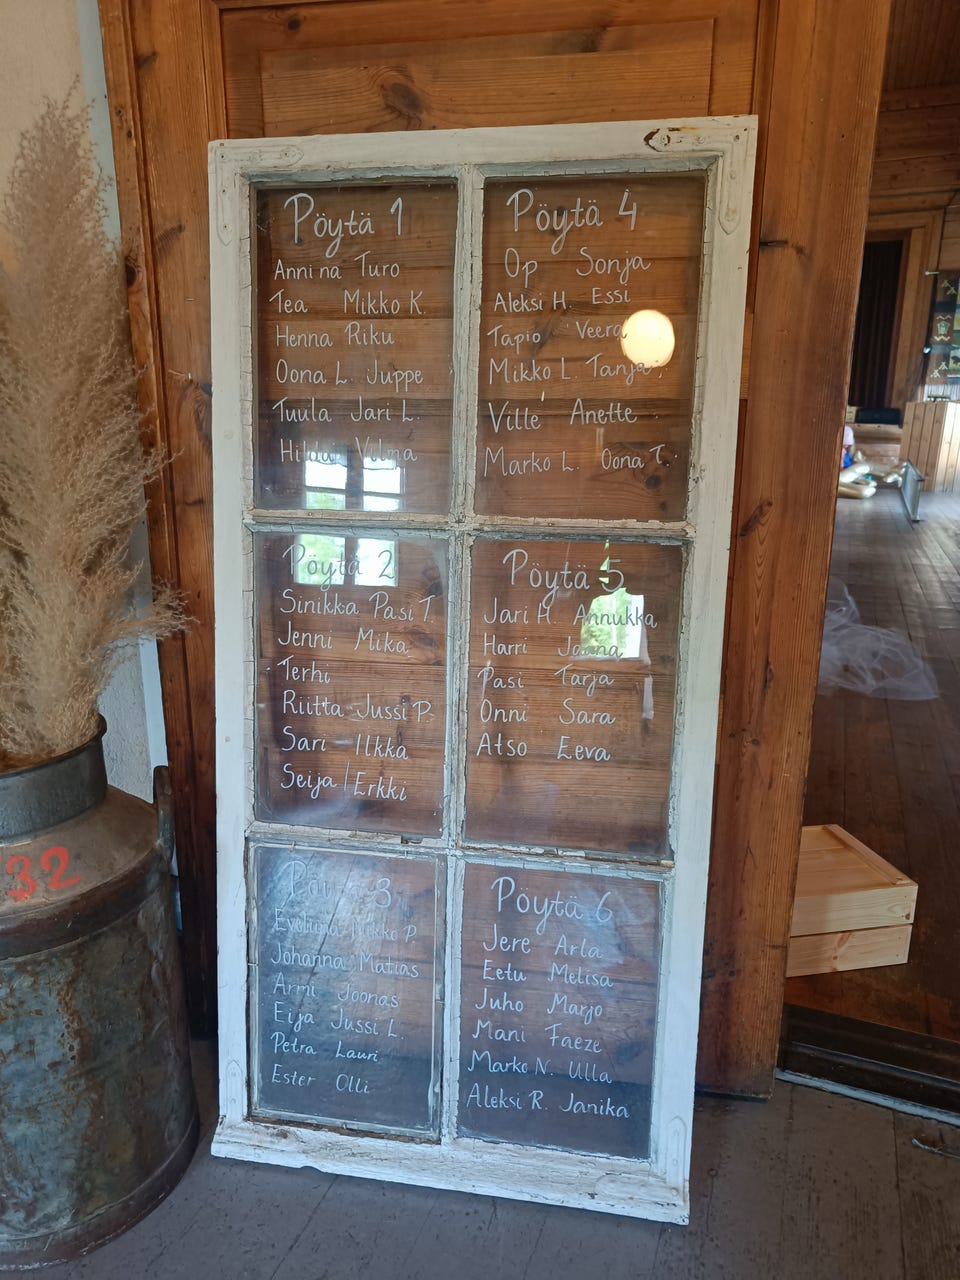 Pöytä 1
Annina Turo
Tea Mikko K.
Henna Riku
Oona L. Juppe
Tuula Jari L.
Vilma
Pöytä 2
Sinikka Pasi T.
Jenni Mika
Terhi
Riitta Jussi P.
Sari Ilkka
Seija Erkki
Pöytä 3
Eveliina Mikko P.
Johanna Matias
Armi Joonas
Eija Jussi L.
Petra Lauri
Ester Olli
Pöytä 4
Op Sonja
Aleksi H. Essi
Tapio Veera
Mikko L. Tanja
Ville Anette
Marko L. Oona T.
Pöytä 5
Jari H. Annukka
Harri Joana
Pasi Tarja
Onni Sara
Atso Eeva
Pöytä 6
Jere Arla
Eetu Melisa
Juho Marjo
Mani Faeze
Marko N. Ulla
Aleksi R. Janika
32